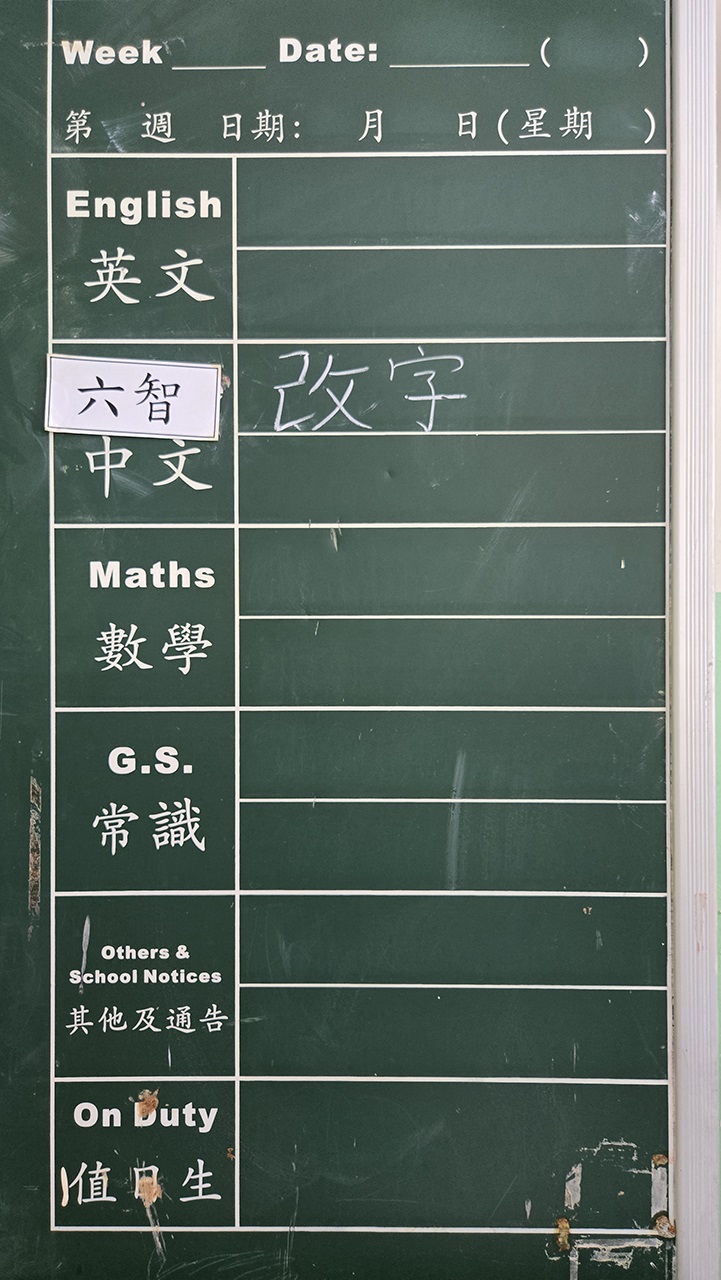 Week ____ Date: ______ ( )
第 週 日期: 月 日(星期 )
English
英文
六智
改字
中文
Maths
數學
G.S.
常識
Others &
School Notices
其他及通告
On Duty
值日生